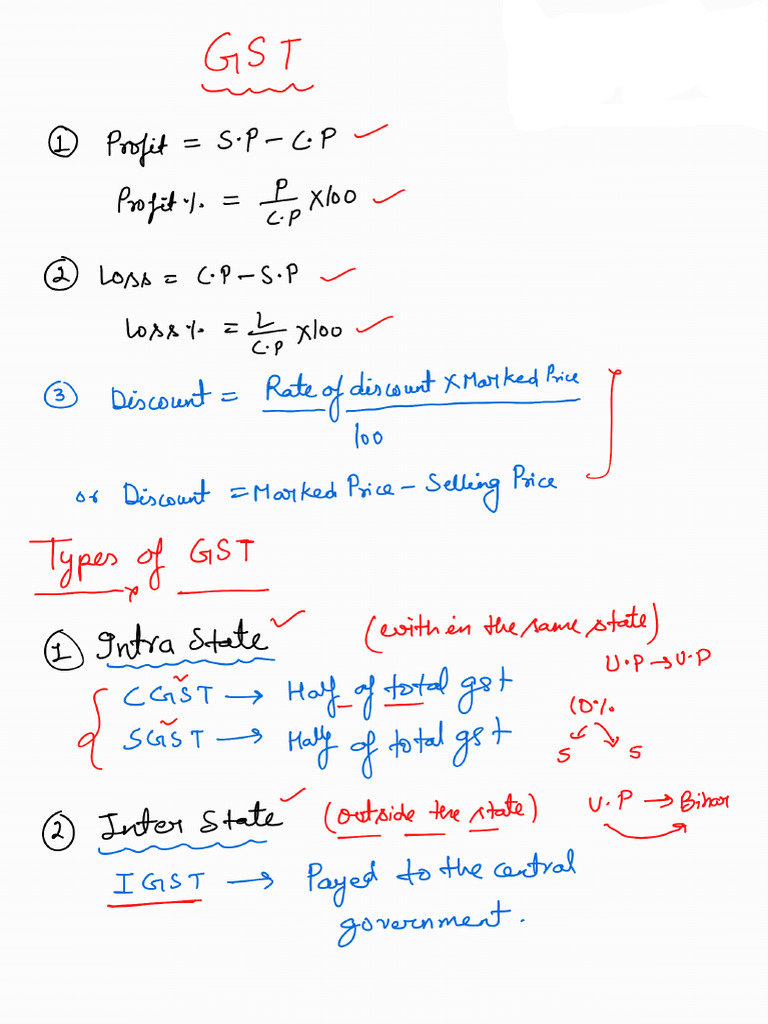 GST
① Profit = S.P - C.P ✓
Profit % = P/C.P × 100 ✓
② Loss = C.P - S.P ✓
Loss % = L/C.P × 100 ✓
③ Discount = Rate of discount × Marked Price / 100
or Discount = Marked Price - Selling Price
Types of GST
① Intra State ✓ (with in the same state)
U.P → U.P
CGST → Half of total gst
10%
SGST → Half of total gst
5 5
② Inter State ✓ (outside the state) U.P → Bihar
IGST → Payed to the central
government.